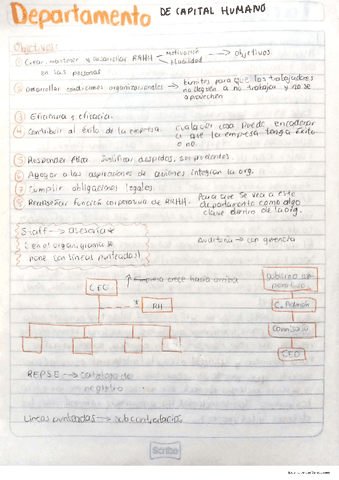 Departamento DE CAPITAL HUMANO
Objetivos:
① Crear, mantener y desarrollar RRHH → motivación → Objetivos
en las personas
② Desarrollar condiciones organizacionales → limites para que los trabajadores
no lleguen a no trabajar y no se
aprovechen
③ Eficiencia y eficacia.
④ Contribuir al éxito de la empresa. Cualquier cosa puede encaderar
a que la empresa tenga éxito
o no.
⑤ Responder
⑥ Apoyar a las aspiraciones de quienes integran la org.
⑦ Cumplir obligaciones legales.
⑧ Rediseñar función corporativa de RRHH. Para que se vea a este
departamento como algo
clave dentro de la org.
Staff → asesoría
(en el organigrama se
pone con líneas punteadas)
Auditoria → con gerencia
crece hacia arriba
CEO
RH
C. Admón
Comisario
CEO
REPSE → catálogo de
registro
Líneas punteadas → subcontratación
Scribe